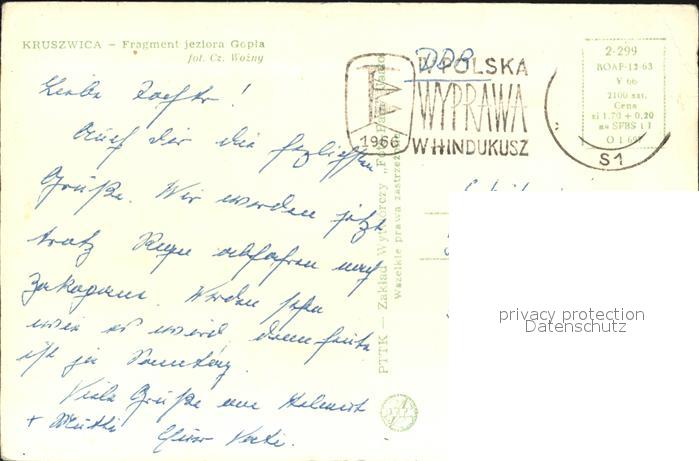 KRUSZWICA – Fragment jeziora Gopła
fot. Cz. Woźny
Liebe Tochter!
Auch dir die herzlichsten
Grüße. Wir werden jetzt
trotz Regen abfahren nach
Zakopane. Werden sehn
wie es wird denn heute
ist ja Sonntag.
Viele Grüße an Helmut
+ Mutti Euer Vati.
PTTK — Zakład Wytwórczy „Foto-Pam
Wszelkie prawa zastrzeżone
DDR
1966
POLSKA
WYPRAWA
W HINDUKUSZ
S1
2-299
Y 66
2100 szt.
Cena
zł 1.70 + 0,20
na SFBS
privacy protection
Datenschutz